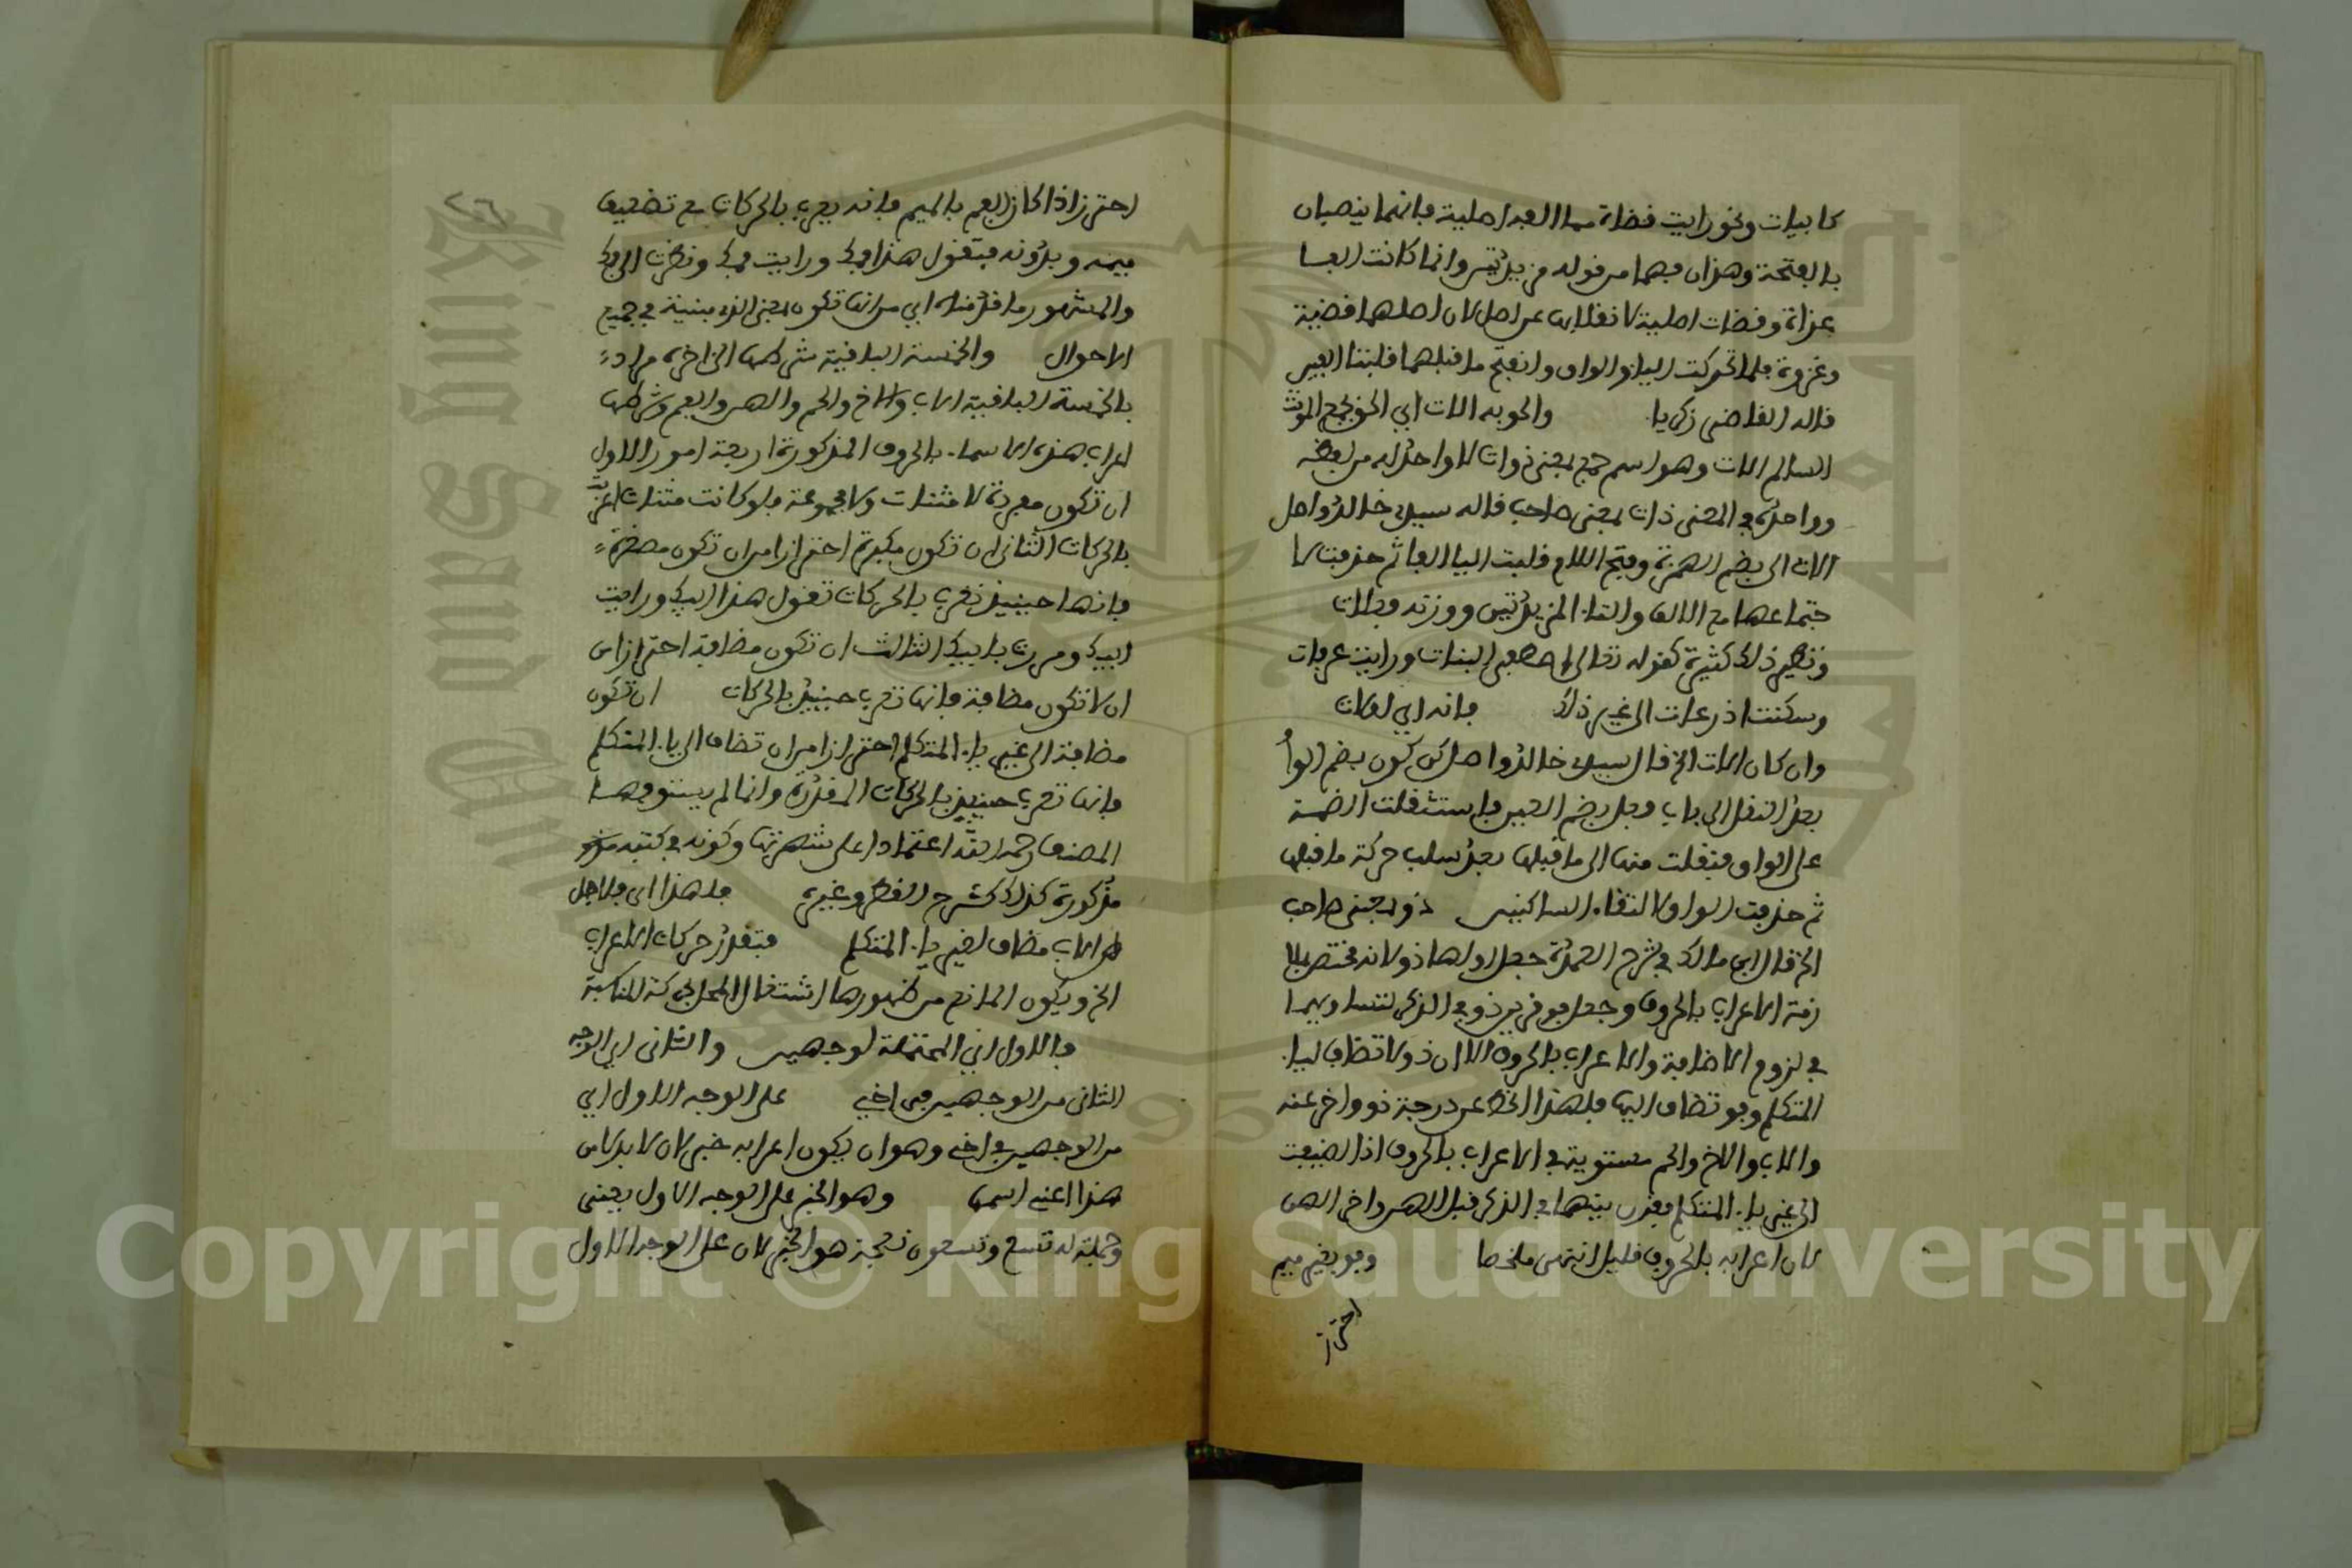 كابيات ونحو رايت قضاة مما الفه اصلية فانهما ينصبان
بالفتحة وهذان فهما من قوله مزيدتين وانما كانت الفا
غزاة وقضات اصلية لانقلابها عن اصل لان اصلهما قضية
وغزوة فلما تحركت اليا والواو وانفتح ما قبلهما قلبتا الفين
قاله القاضي زكريا والحق به الات اي الحق بجمع المونث
السالم الات وهو اسم جمع بمعنى ذوات لا واحد له من لفظه
وواحده في المعنى ذات بمعنى صاحب قاله سيدي خالد واصل
الات الى بضم الهمزة وفتح اللام قلبت اليا الفا ثم حذفت لا
جتماعها مع الالف والتاء المزيدتين ووزنه فعات
ونظير ذلك كثيرة كقوله تعالى اصطفى البنات ورايت عرفات
وسكنت اذرعات الى غير ذلك فانه اي لفات
وان كان الات الخ قال سيدي خالد واصل تكون بضم الواو
بعد النقل الى باب فعل بضم العين فاستثقلت الضمة
على الواو فنقلت منها الى ما قبلها بعد سلب حركة ما قبلها
ثم حذفت الواو لالتقاء الساكنين ذو بمعنى صاحب
الخ قال ابن مالك في شرح العمدة جعل اولها ذو لانه مختص بملا
زمة الاعراب بالحروف وجعل فو قرين ذو في الذكر لتساويهما
في لزوم الاضافة والاعراب بالحروف الا ان ذو لا تضاف ليا
المتكلم وفو تضاف اليها فلهذا انحط عن درجة ذو واخر عنه
والاب والاخ والحم مستوية في الاعراب بالحروف اذا اضيفت
الى غير ياء المتكلم فقرن بينهما في الذكر قبل الهن واخر الهن
لان اعرابه بالحروف قليل انتهى ملخصا وفو بغير ميم
احتراز
٢٦
احترزا اذا كان الفم بالميم فانه يعرب بالحركات مع تضعيف
ميمه وبدونه فتقول هذا فمك ورايت فمك ونظرت الى فمك
والمشهور ما قدمناه اي من انها تكون بمعنى الذي مبنية في جميع
الاحوال والخمسة الباقية شرطها الخ اخره مراده
بالخمسة الباقية الاب والاخ والحم والهن والفم وشرطها
اعراب هذه الاسماء بالحروف المذكورة اربعة امور الاول
ان تكون مفردة لا مثنات ولا مجموعة فلو كانت مثنات اعربت
بالحركات الثاني ان تكون مكبرة احترازا من ان تكون مصغرة
فانها حينيذ تعرب بالحركات تقول هذا ابيك ورايت
ابيك ومررت بابيك الثالث ان تكون مضافة احترازا من
ان لا تكون مضافة فانها تعرب حينيذ بالحركات ان تكون
مضافة الى غير ياء المتكلم احترازا من ان تضاف الى ياء المتكلم
فانها تعرب حينيذ بالحركات المقدرة وانما لم يستوفها
المصنف رحمه الله اعتمادا على شهرتها وكونه في كتبه
مذكورة كذلك كشرح القطر وغيره فلهذا اي فلاجل
ان الاب مضاف لغير ياء المتكلم فتقدر حركات الاعراب
الخ ويكون المانع من ظهورها اشتغال المحل بحركة المناسبة
فالاول اي المحتملة لوجهين والثاني اي الوجه
الثاني من الوجهين في اخي على الوجه الاول اي
من الوجهين في اخي وهو ان يكون اعرابه خبر لان لا بدلا من
هذا اعني اسمها وهو الخبر على الوجه الاول يعني
وجملة له تسع وتسعون نعجة هو الخبر لان على الوجه الاول
Copyright © King Saud University